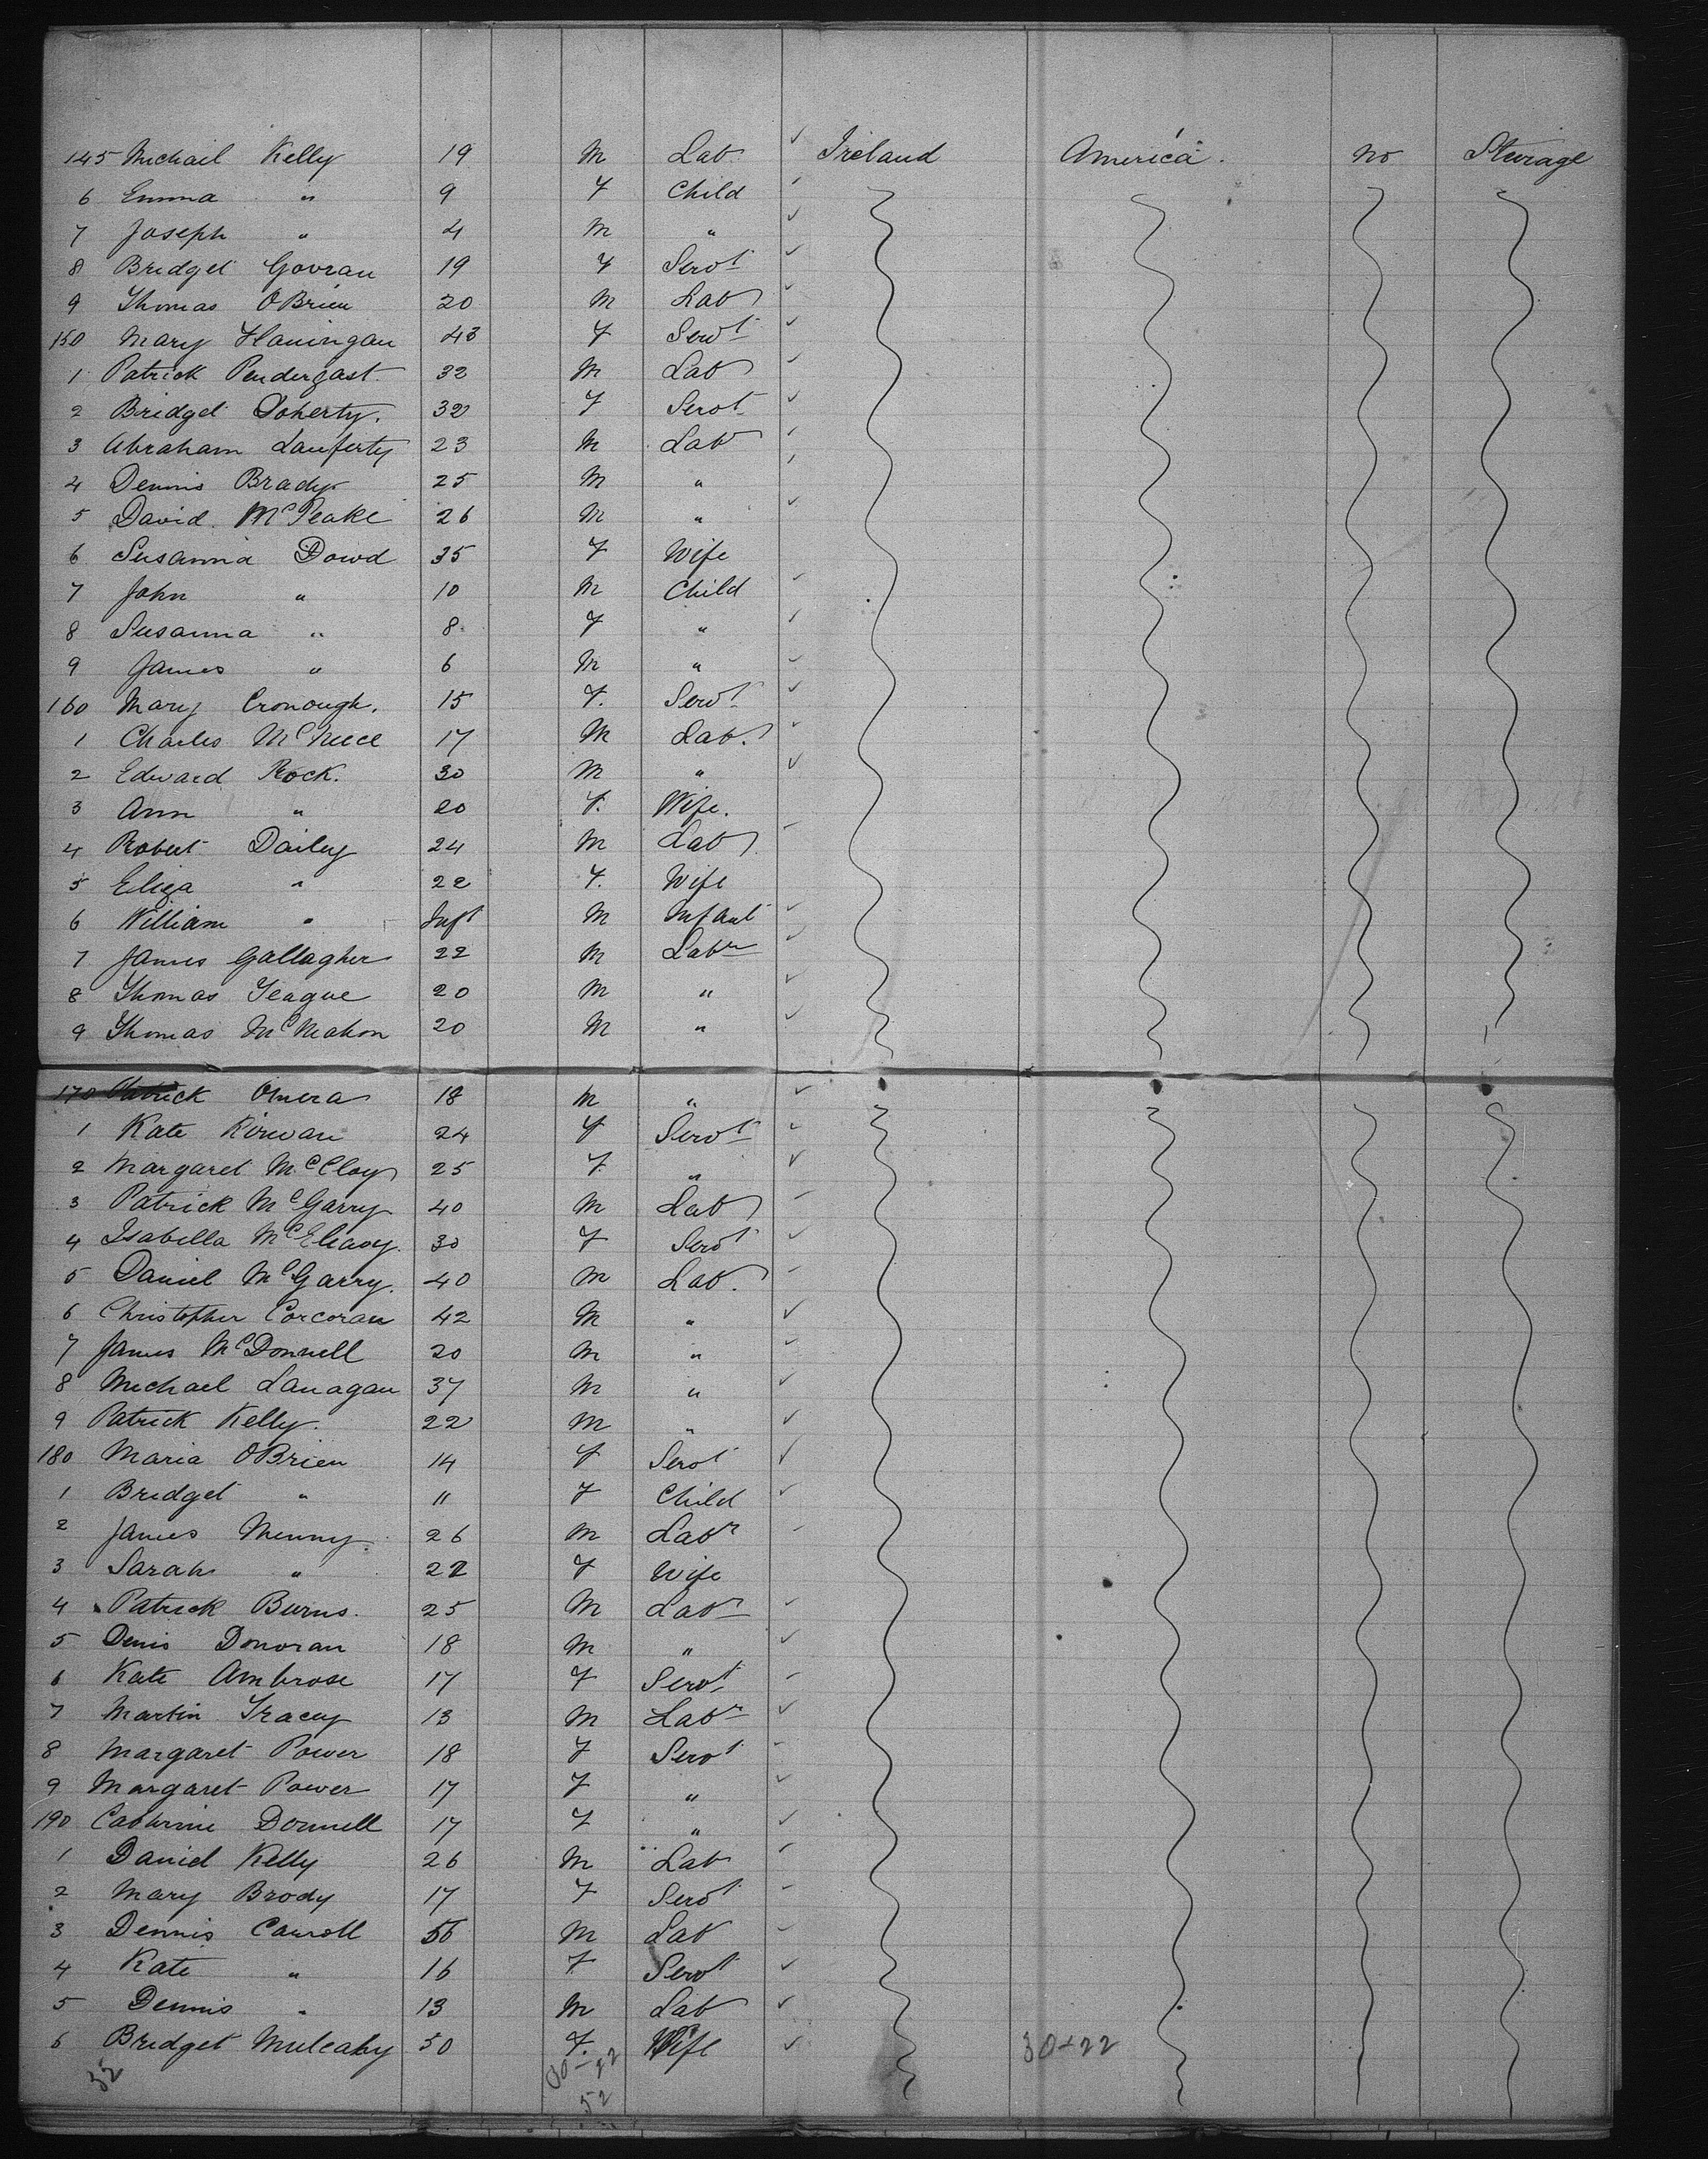 145 Michail Kelly 19 M Lab Ireland America no Sturage
6 Emma " 9 F Child
7 Joseph " 4 M "
8 Bridget Govran 19 F Servt
9 Thomas O'Brien 20 M Lab
150 Mary Flaningan 43 F Servt
1 Patrick Pendergast 32 M Lab
2 Bridget Doherty. 32 F Servt
3 Abraham Lauferty 23 M Lab
4 Dennis Brady 25 M "
5 David McPeake 26 M "
6 Susanna Dowd 35 F Wife
7 John " 10 M Child
8 Susanna " 8 F "
9 James " 6 M "
160 Mary Cronough. 15 F. Servt
1 Charles McNeece 17 M Lab.
2 Edward Rock. 30 M "
3 Ann " 20 F. Wife.
4 Robert Dailey 24 M Lab
5 Eliza " 22 F. Wife
6 William " Inft M Infant
7 James Gallagher 22 M Labr
8 Thomas Teague 20 M "
9 Thomas McMahon 20 M "
170 Patrick Omera 18 M "
1 Kate Kirwan 24 F Servt
2 Margaret McCloy 25 F. "
3 Patrick McGarry 40 M Lab
4 Isabella 30 F Servt
5 Daniel McGarry. 40 M Lab.
6 Christopher Corcoran 42 M "
7 James McDonnell 20 M "
8 Michael Lanagan 37 M "
9 Patrick Kelly. 22 M "
180 Maria O'Brien 14 F Servt
1 Bridget " 11 F Child
2 James Menny. 26 M Labr
3 Sarah " 22 F Wife
4 Patrick Burns. 25 M Labr
5 Denis Donovan 18 M "
6 Kate Ambrose 17 F Servt
7 Martin Tracey 13 M Labr
8 Margaret Power 18 F Servt
9 Margaret Power 17 F "
190 Catherine Donnell 17 F "
1 Daniel Kelly 26 M Lab
2 Mary Brody 17 F Servt
3 Dennis Carroll 56 M Lab
4 Kate " 16 F Servt
5 Dennis " 13 M Lab
6 Bridget Mulcahy 50 F. Wife
30+22
32
52